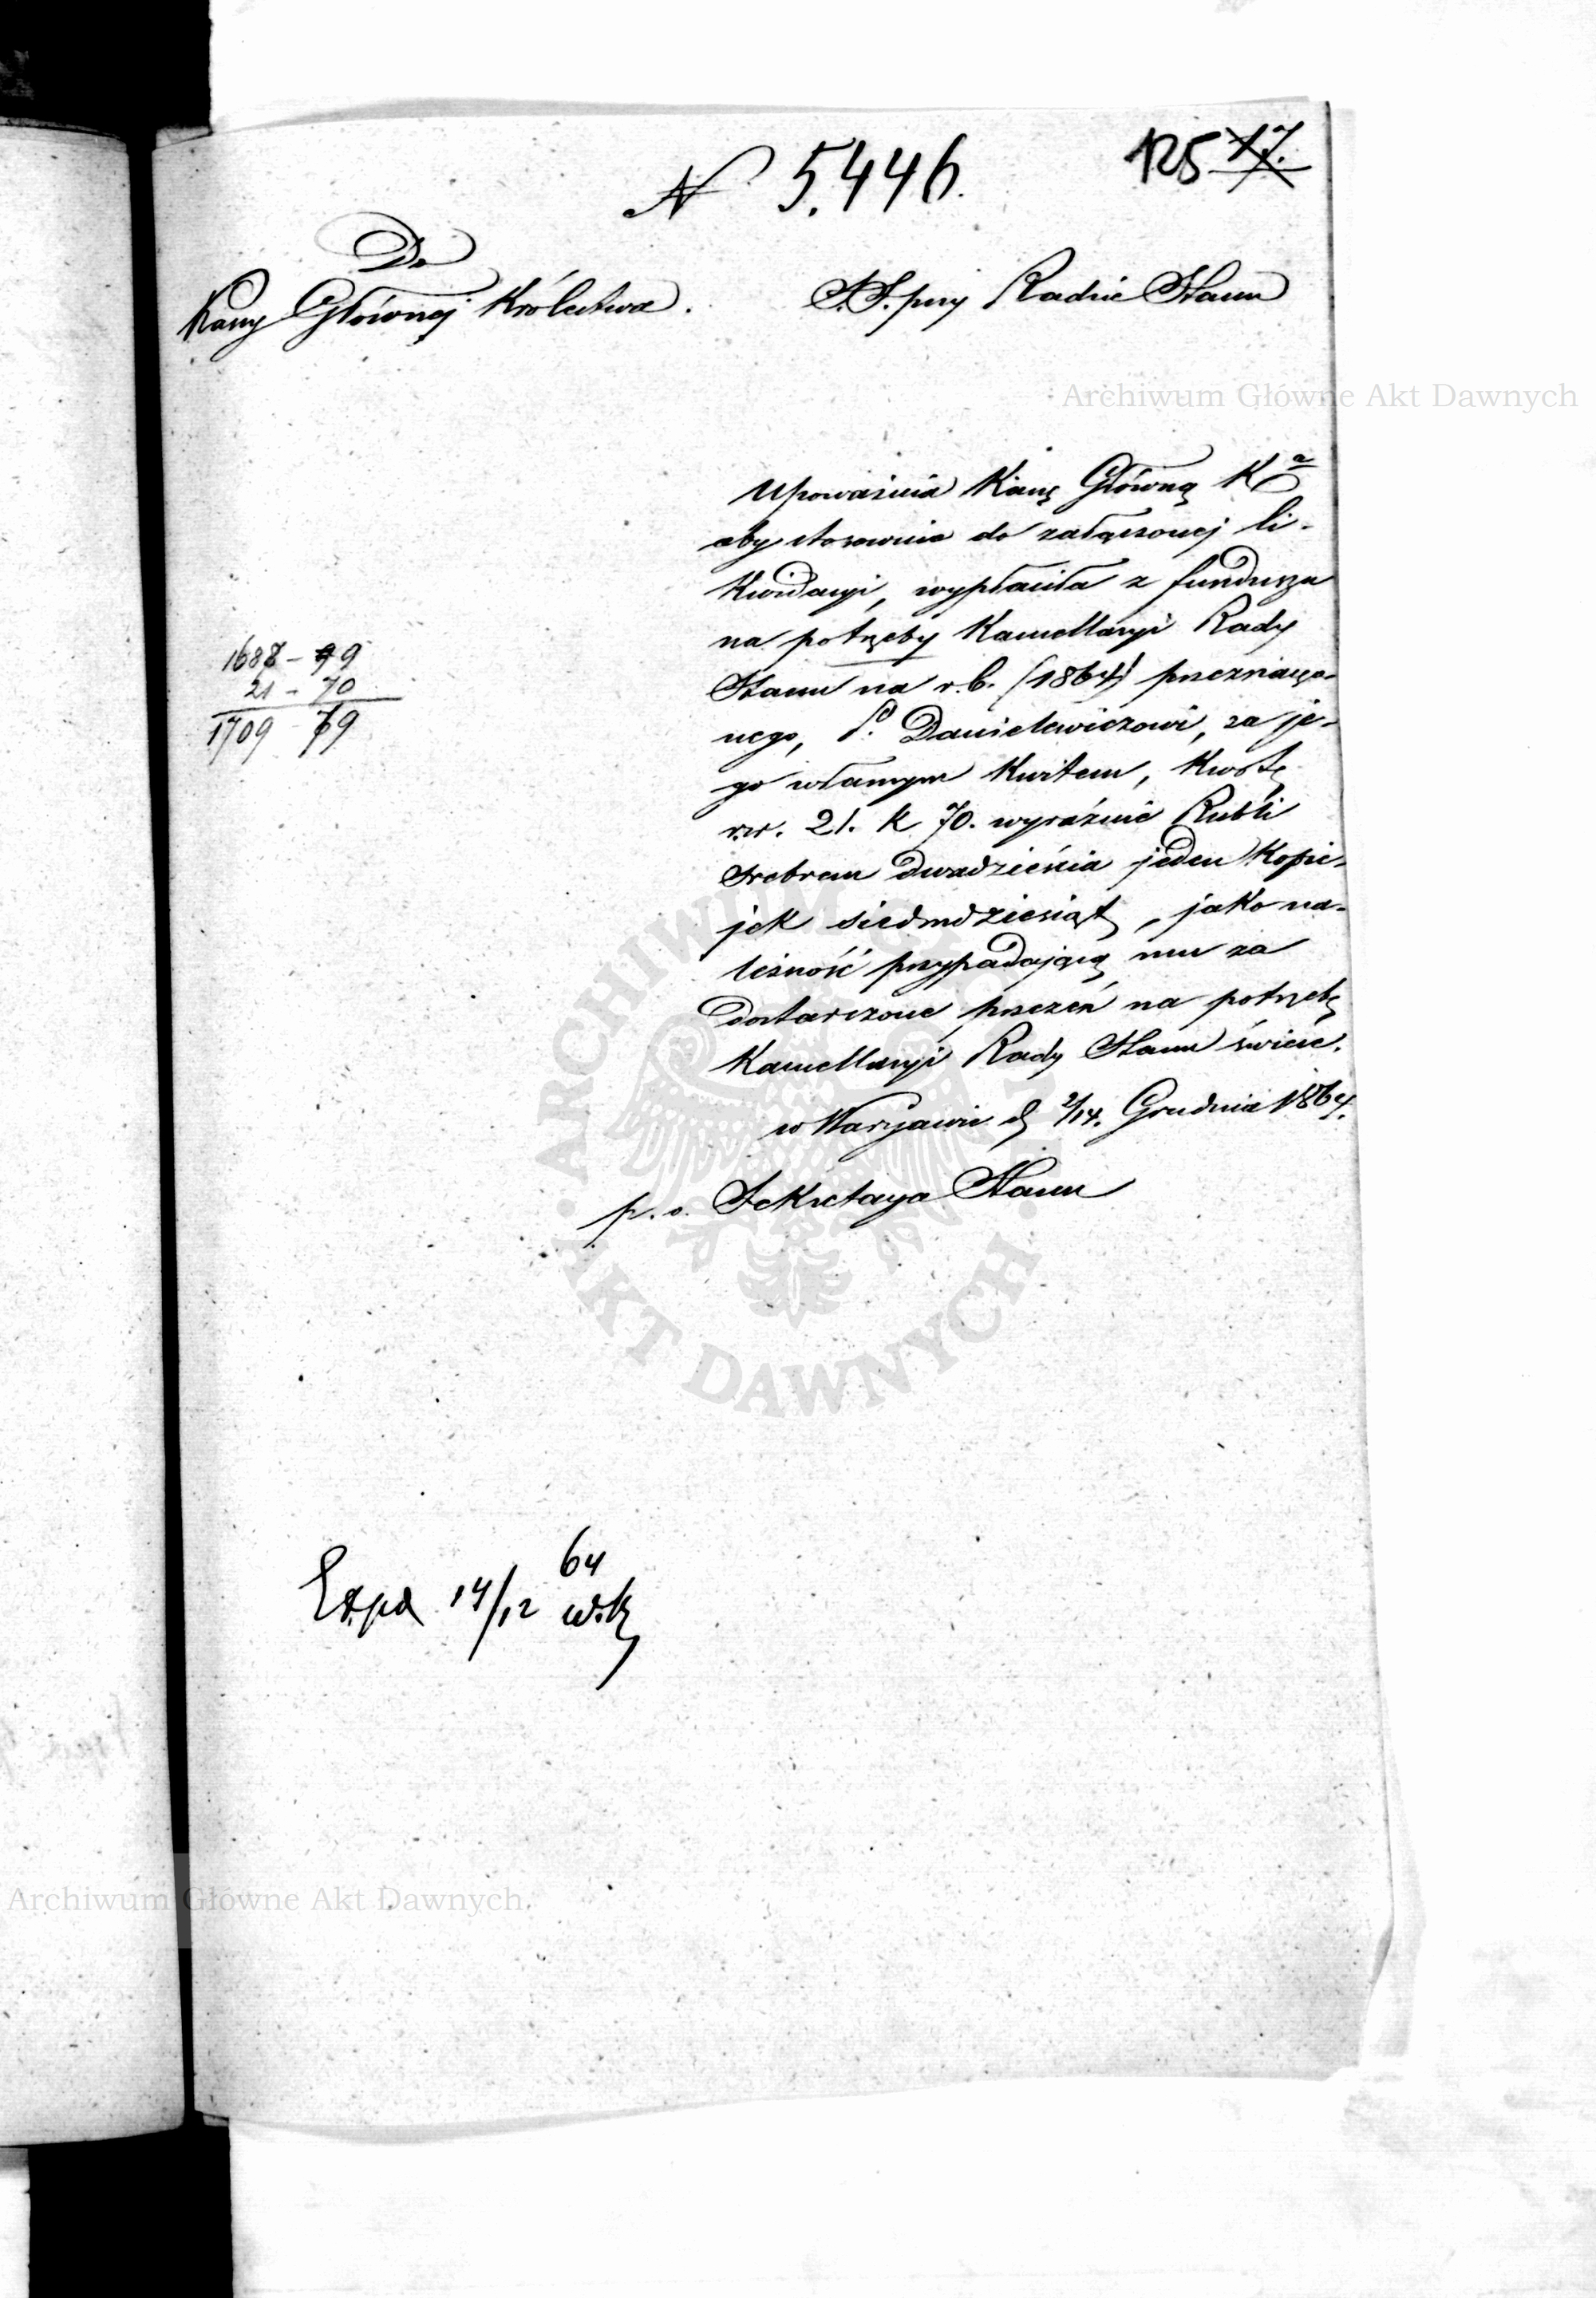 125 17.
N 5,446.
Do
Kassy Głównej Królestwa.
S. S. przy Radzie Stanu
Archiwum Główne Akt Dawnych
Upoważnia Kassę Główną Kª
aby stosownie do załączonej li-
kwidacyi, wypłaciła z funduszu
na potrzeby Kancellaryi Rady
Stanu na r. b. (1864) przeznaczo-
nego, P. Danielewiczowi, za je-
go własnym kwitem, kwotę
rsr. 21. k 70. wyraźnie Rubli
srebrem dwadzieścia jeden kopie-
jek siedmdziesiąt, jako na-
leżność przypadającą mu za
dostarczone przezeń na potrzebę
Kancellaryi Rady Stanu świece.
w Warszawie d. 2/14. Grudnia 1864.
p. o. Sekretarza Stanu
1688 - 99
21 - 70
1709 79
64
Exped 14/12 w.k
Archiwum Główne Akt Dawnych
ARCHIWUM
AKT DAWNYCH